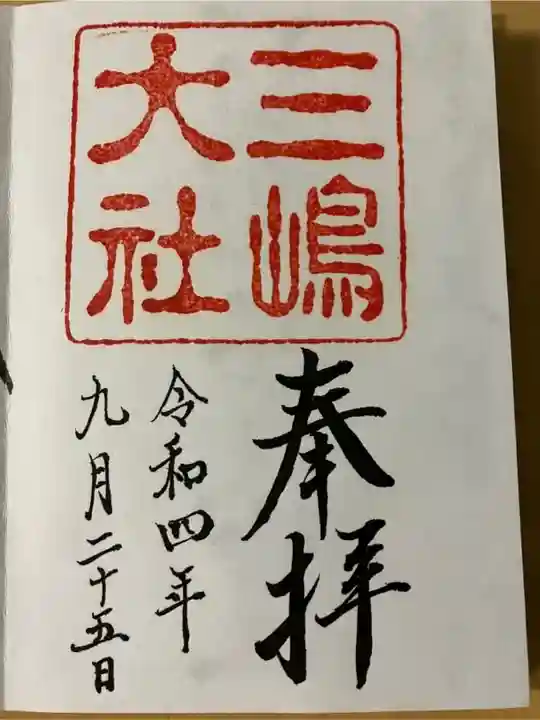 三嶋
大社
奉拝
令和四年
九月二十五日